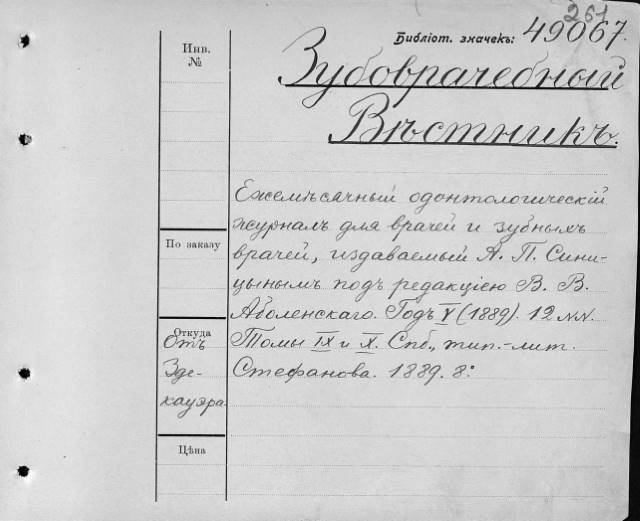 261
Библіот. значекъ: 49067.
Инв.
№
Зубоврачебный
Вѣстникъ.
Ежемѣсячный одонтологическій
журналъ для врачей и зубныхъ
врачей, издаваемый А. П. Сини-
цынымъ подъ редакціею В. В.
Аболенскаго. Годъ V (1889). 12 NN.
Томы IX и X. Спб., тип.-лит.
Стефанова. 1889. 8º
По заказу
Откуда
отъ
Зде-
кауэра.
Цѣна